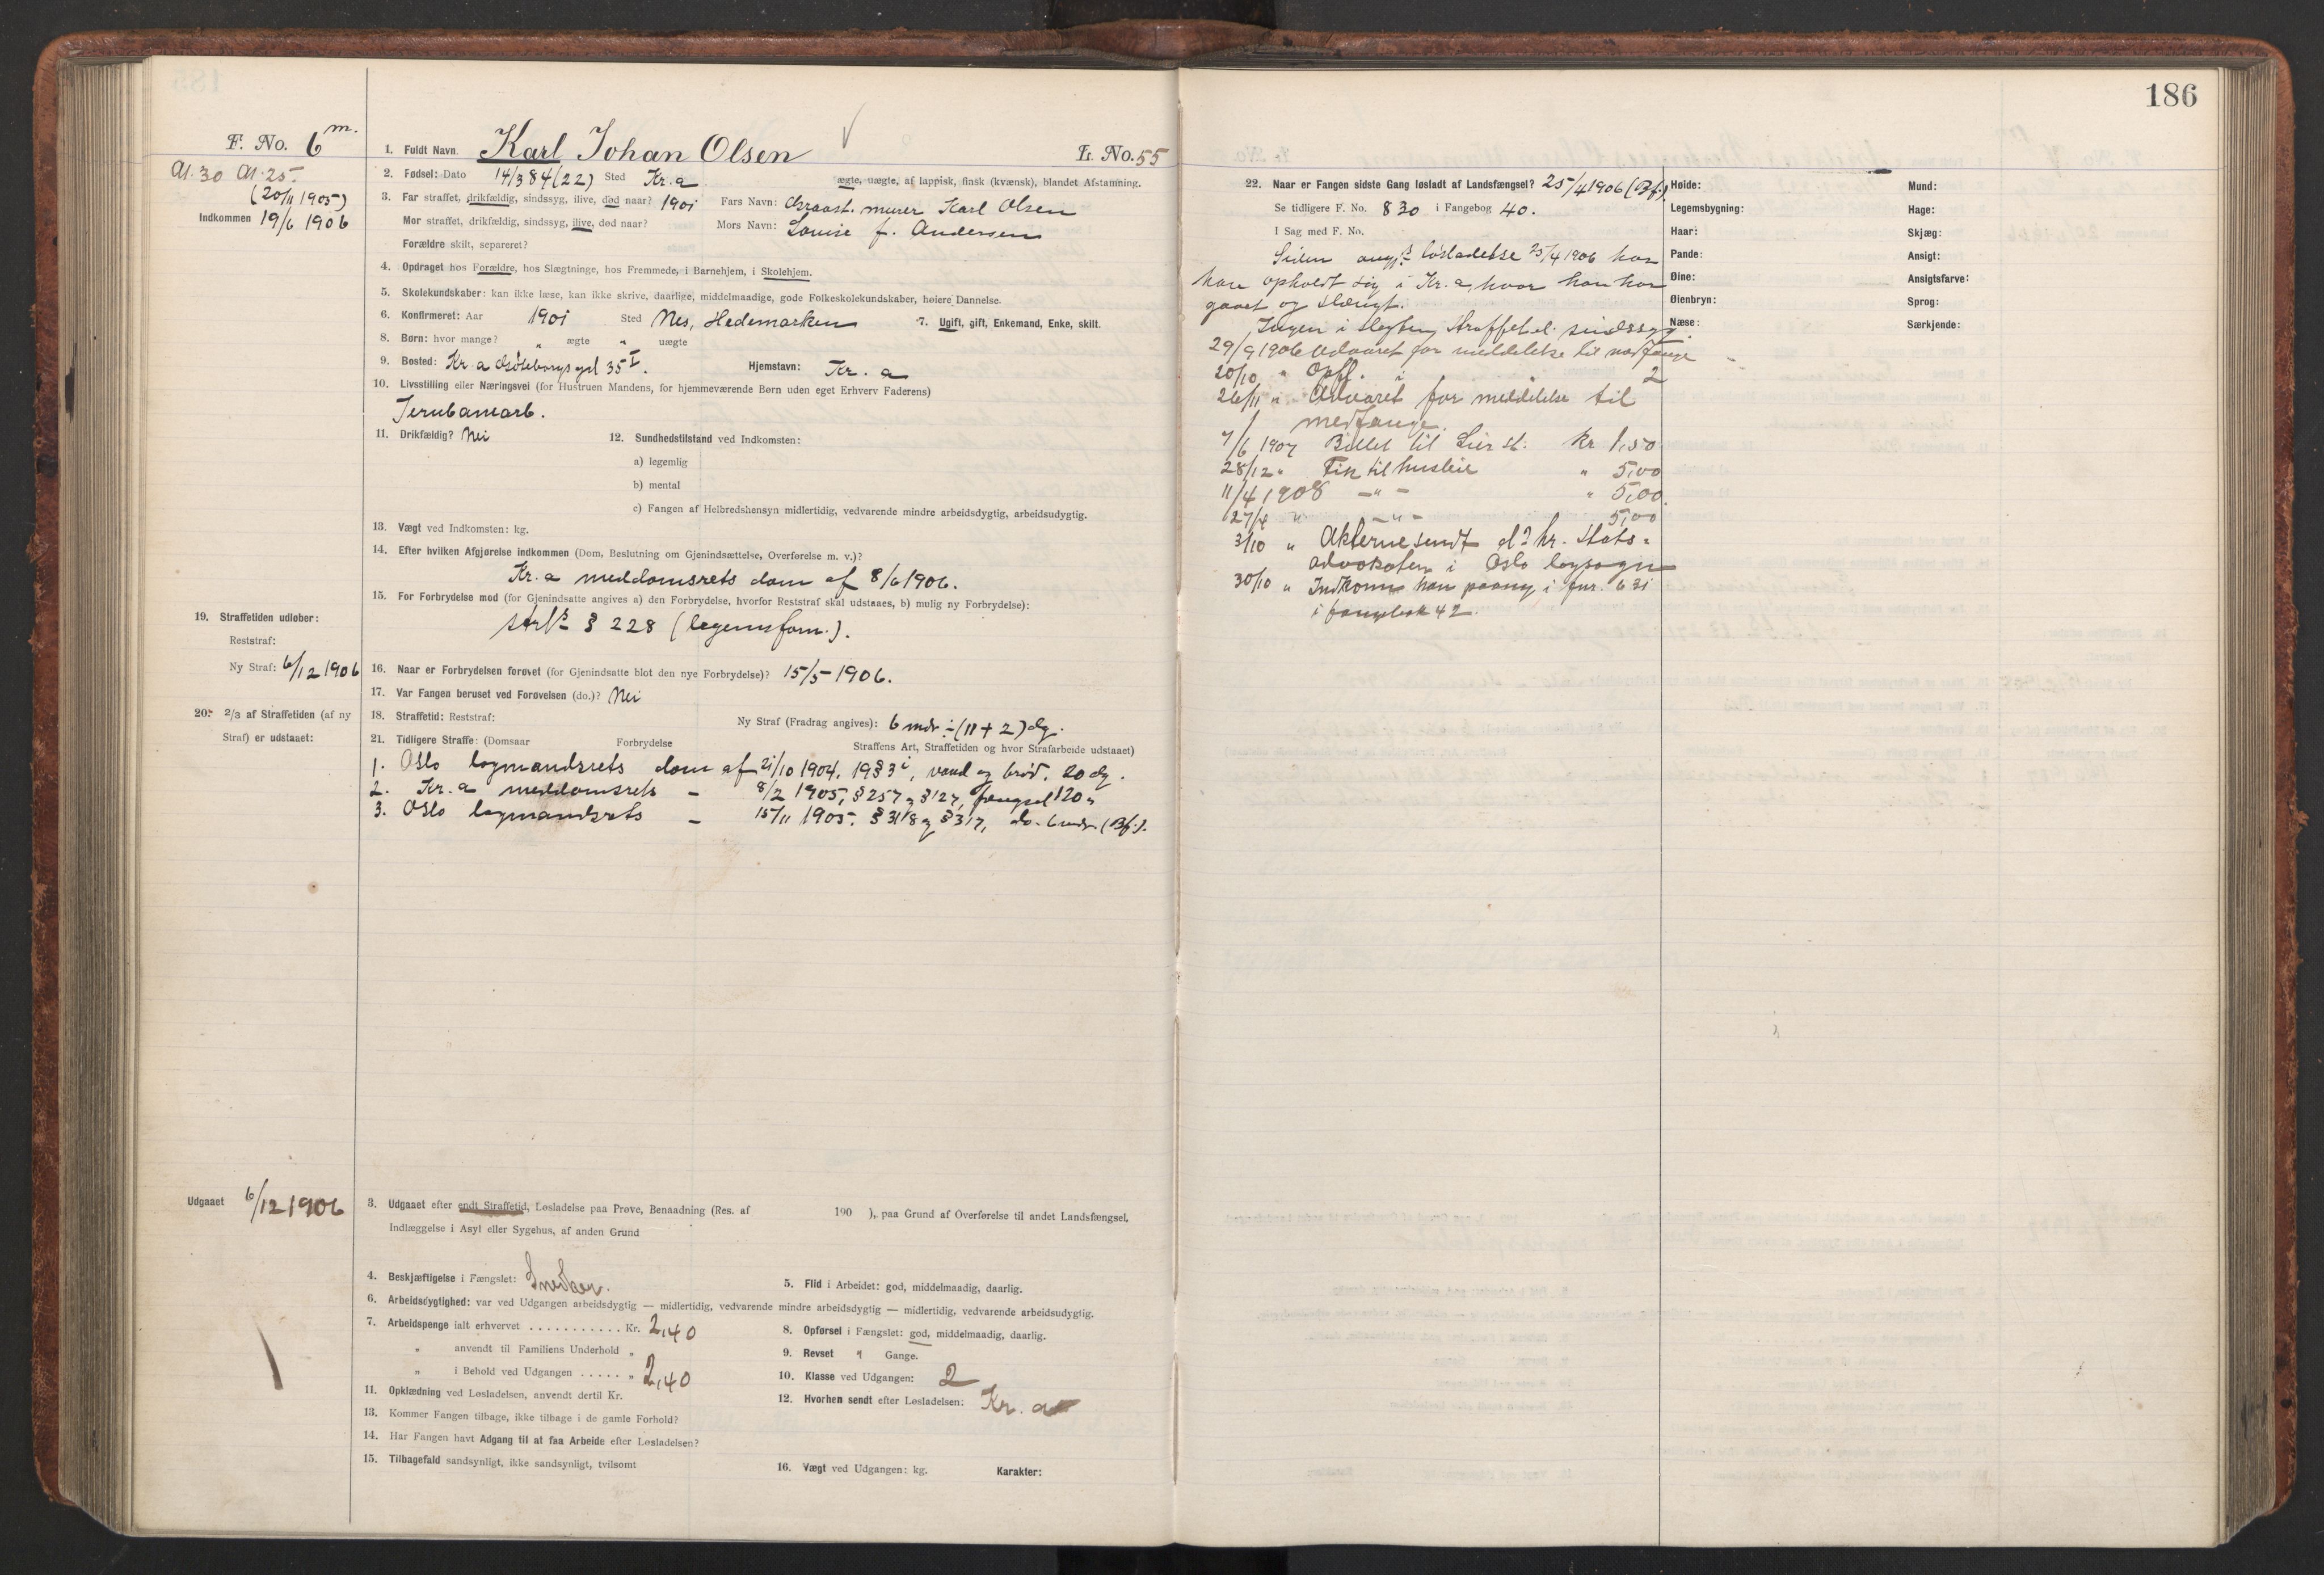 186
F. No. 6 m.
Al. 30 Al. 25.
(20/11 1905)
Indkommen 19/6 1906
1. Fuldt Navn. Karl Johan Olsen L. No. 55
2. Fødsel: Dato 14/3 84 (22) Sted Kr.a ægte, uægte, af lappisk, finsk (kvænsk), blandet Afstamning.
3. Far straffet, drikfældig, sindssyg, ilive, død naar? 1901 Fars Navn: Graast. murer Karl Olsen
Mor straffet, drikfældig, sindssyg, ilive, død naar? Mors Navn: Lovise f. Andersen
Forældre skilt, separeret?
4. Opdraget hos Forældre, hos Slægtninge, hos Fremmede, i Barnehjem, i Skolehjem.
5. Skolekundskaber: kan ikke læse, kan ikke skrive, daarlige, middelmaadige, gode Folkeskolekundskaber, høiere Dannelse.
6. Konfirmeret: Aar 1901 Sted Nes, Hedemarken 7. Ugift, gift, Enkemand, Enke, skilt.
8. Børn: hvor mange? " ægte " uægte
9. Bosted: Kr.a Gøteborgsgd 35 I. Hjemstavn: Kr.a
10. Livsstilling eller Næringsvei (for Hustruen Mandens, for hjemmeværende Børn uden eget Erhverv Faderens)
Jernbanearb.
11. Drikfældig? Nei 12. Sundhedstilstand ved Indkomsten:
a) legemlig
b) mental
c) Fangen af Helbredshensyn midlertidig, vedvarende mindre arbeidsdygtig, arbeidsudygtig.
13. Vægt ved Indkomsten: kg.
14. Efter hvilken Afgjørelse indkommen (Dom, Beslutning om Gjenindsættelse, Overførelse m. v.)?
Kr.a meddomsrets dom af 8/6 1906.
15. For Forbrydelse mod (for Gjenindsatte angives a) den Forbrydelse, hvorfor Reststraf skal udstaaes, b) mulig ny Forbrydelse):
strl. § 228 (legemsforn.).
19. Straffetiden udløber:
Reststraf:
Ny Straf: 6/12 1906
16. Naar er Forbrydelsen forøvet (for Gjenindsatte blot den nye Forbrydelse)? 15/5 1906.
17. Var Fangen beruset ved Forøvelsen (do.)? Nei
20. 2/3 af Straffetiden (af ny
Straf) er udstaaet:
18. Straffetid: Reststraf: Ny Straf (Fradrag angives): 6 mdr ÷ (11 + 2) dg.
21. Tidligere Straffe: (Domsaar Forbrydelse Straffens Art, Straffetiden og hvor Strafarbeide udstaaet)
1. Oslo lagmandsrets dom af 21/10 1904, 19 § 3 i, vand og brød. 20 dg.
2. Kr.a meddomsrets – 8/2 1905, § 257 og § 127, fængsel 120 "
3. Oslo lagmandsrets – 15/11 1905. § 318 og § 317, do. 6 mdr. (Bf.).
Udgaaet 6/12 1906
3. Udgaaet efter endt Straffetid, Løsladelse paa Prøve, Benaadning (Res. af 190 ), paa Grund af Overførelse til andet Landsfængsel,
Indlæggelse i Asyl eller Sygehus, af anden Grund
4. Beskjæftigelse i Fængslet: Snedker. 5. Flid i Arbeidet: god, middelmaadig, daarlig.
6. Arbeidsdygtighed: var ved Udgangen arbeidsdygtig — midlertidig, vedvarende mindre arbeidsdygtig — midlertidig, vedvarende arbeidsudygtig.
7. Arbeidspenge ialt erhvervet ........... Kr. 2,40 8. Opførsel i Fængslet: god, middelmaadig, daarlig.
" anvendt til Familiens Underhold " 9. Revset " Gange.
" i Behold ved Udgangen ..... " 2,40 10. Klasse ved Udgangen: 2
11. Opklædning ved Løsladelsen, anvendt dertil Kr. 12. Hvorhen sendt efter Løsladelsen: Kr.a
13. Kommer Fangen tilbage, ikke tilbage i de gamle Forhold?
14. Har Fangen havt Adgang til at faa Arbeide efter Løsladelsen?
15. Tilbagefald sandsynligt, ikke sandsynligt, tvilsomt 16. Vægt ved Udgangen: kg. Karakter:
22. Naar er Fangen sidste Gang løsladt af Landsfængsel? 25/4 1906 (Bf.)
Se tidligere F. No. 830 i Fangebog 40.
I Sag med F. No.
Siden løsladelse 25/4 1906 har
han opholdt sig i Kr.a, hvor han har
gaaet og slængt.
Ingen i slegten straffet el. sindssyg.
29/9 1906 Advaret for meddelelse til medfange
20/10 " Opfl. i 2
26/11 " Advaret for meddelelse til
medfange.
7/6 1907 Billet til Lier st. Kr 1,50
28/12 " Fik til husleie " 5,00
11/4 1908 — " — " 5,00.
27/4 " — " — 5,00
3/10 " Akterne sendt hr. Stats-
advokaten i Oslo lagsogn
30/10 " Indkom han paany i fnr. 631
i fangebok 42.
Høide: Mund:
Legemsbygning: Hage:
Haar: Skjæg:
Pande: Ansigt:
Øine: Ansigtsfarve:
Øienbryn: Sprog:
Næse: Særkjende: